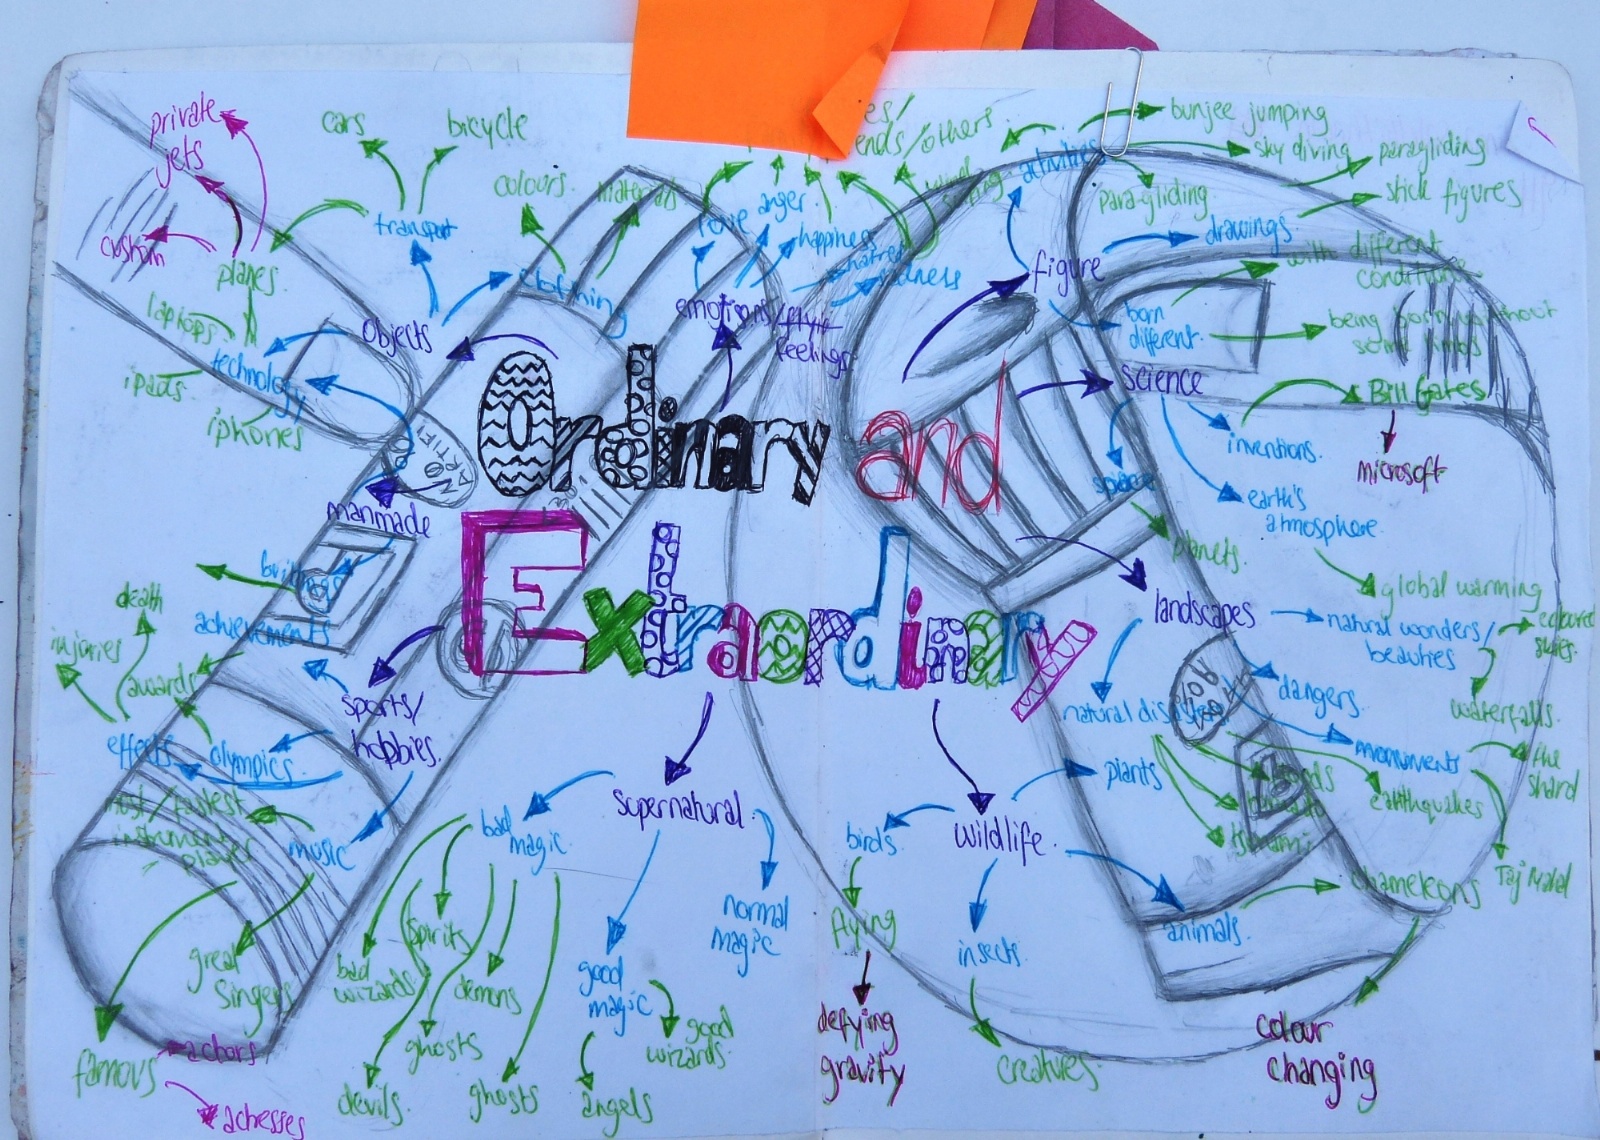 private
jets
custom
planes
cars
bicycle
transport
colours.
materials
clothing
laptops
technology
ipads.
iphones
objects
love
anger
happiness
hatred
emotions/
feelings
ends/others
activities
bunjee jumping
sky diving
paragliding
para-gliding
stick figures
drawings
figure
with different
born
different
being born without
some limbs
science
Bill Gates
microsoft
inventions.
space
earth's
atmosphere
planets.
global warming
Ordinary and
Extraordinary
manmade
buildings
achievements
death
injuries
awards
effects
olympics
sports/
hobbies.
most/fastest
instrument
player
music
great
singers
famous
actors
actresses
supernatural
bad
magic
spirits
bad
wizards
demons
ghosts
devils.
ghosts
good
magic
good
wizards.
angels
normal
magic
landscapes
natural wonders/
beauties
coloured
skies.
waterfalls.
natural disasters
dangers
monuments
the
shard
earthquakes
Taj Mahal
tsunami
wildlife
plants
birds
flying
defying
gravity
insects
creatures
animals.
chameleons
colour
changing